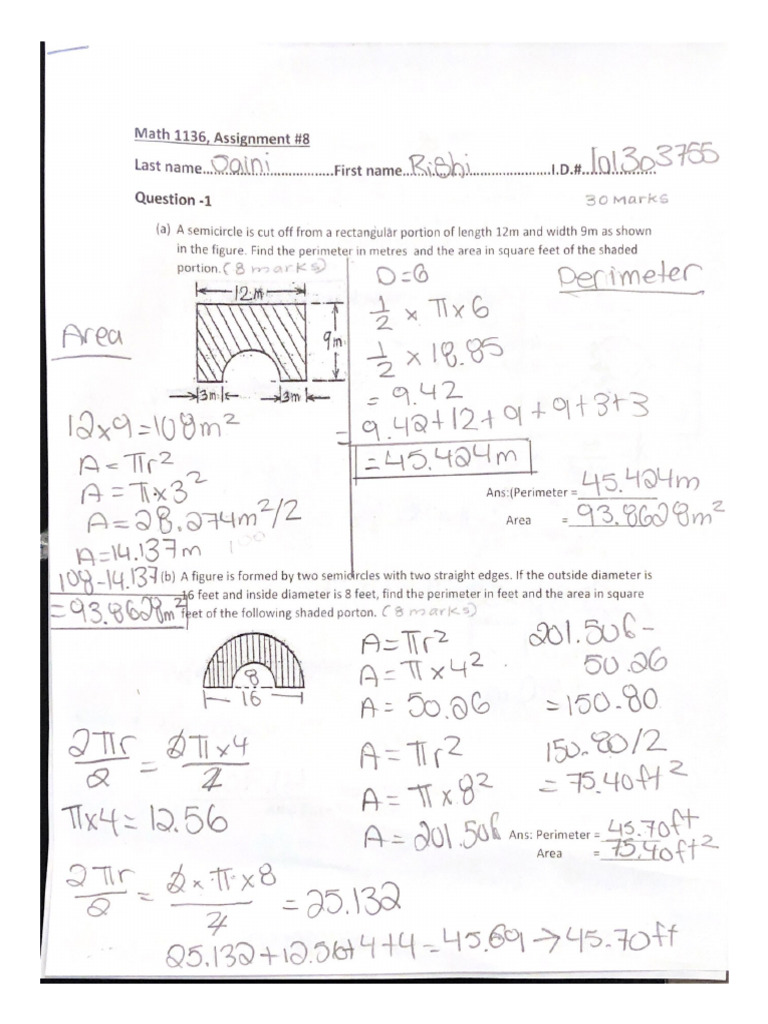 Math 1136, Assignment #8
Last name...Oaini..................First name...Rishi......................I.D.#...101303755
Question -1
30 Marks
(a) A semicircle is cut off from a rectangular portion of length 12m and width 9m as shown
in the figure. Find the perimeter in metres and the area in square feet of the shaded
portion. (8 marks)
12m
9m
3m
3m
Area
12x9=108m²
A=πr²
A=π×3²
A=28.274m²/2
A=14.137m
108-14.137
=93.8628m²
Perimeter
D=6
1/2 × π×6
1/2 × 18.85
= 9.42
= 9.42+12+9+9+3+3
=45.424m
Ans:(Perimeter = 45.424m
Area = 93.8628m²
(b) A figure is formed by two semicircles with two straight edges. If the outside diameter is
16 feet and inside diameter is 8 feet, find the perimeter in feet and the area in square
feet of the following shaded porton. (8 marks)
8
16
2πr/2 = 2π×4/2
π×4=12.56
2πr/2 = 2×π×8/2 =25.132
25.132+12.56+4+4=45.69→45.70ft
A=πr²
A=π×4²
A= 50.26
A=πr²
A=π×8²
A=201.506
201.506-
50.26
=150.80
150.80/2
=75.40ft²
Ans: Perimeter = 45.70ft
Area = 75.40ft²